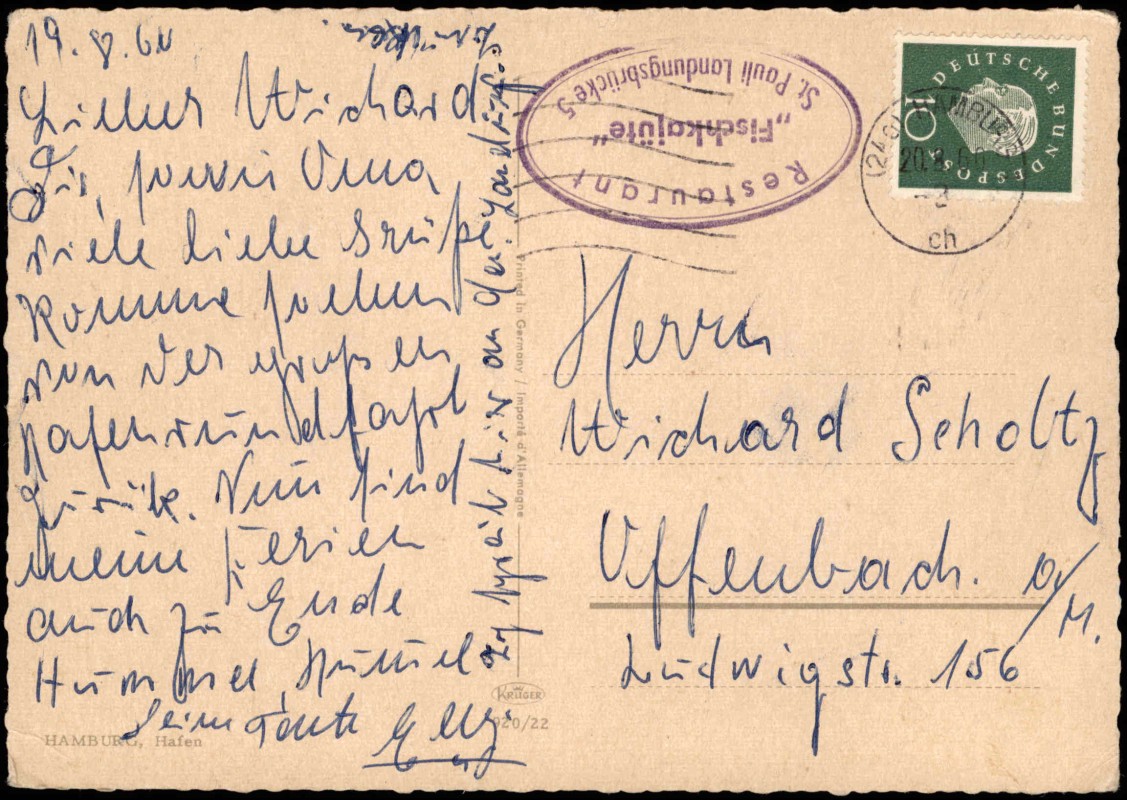 19.8.60
Lieber Wichard
Dir, sowie Oma
viele liebe Grüße.
Komme soeben
von der großen
Hafenrundfahrt
zurück. Nun sind
meine Ferien
auch zu Ende
Hummel, Hummel
Deine Tante Elly.
hier an den Landungs
brücken.
Restaurant
„Fischkajüte“
St. Pauli Landungsbrücke 5
DEUTSCHE BUNDESPOST
10
HAMBURG
20.8.60
ch
Herrn
Wichard Scholtz
Offenbach. a/M.
Ludwigstr. 156
Printed in Germany / Importé d'Allemagne
KRÜGER
920/22
HAMBURG, Hafen